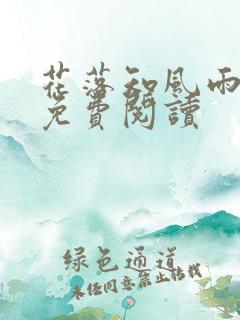 花落知風雨
免費閱讀
綠色通道
未經同意禁止轉載